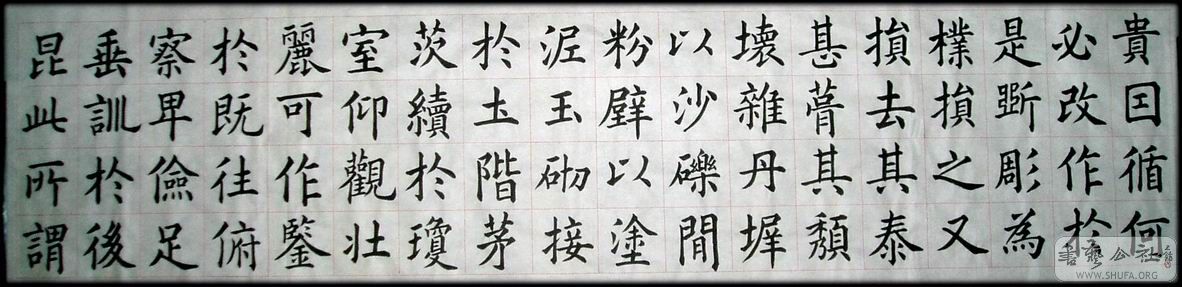 貴因循何
必改作於
是斲彫為
樸損之又
損去其泰
甚葺其頹
壞雜丹墀
以沙礫間
粉壁以塗
泥玉砌接
於土階茅
茨續於瓊
室仰觀壯
麗可作鑒
於既往俯
察卑儉足
垂訓於後
昆此所謂
書藝公社
WWW.SHUFA.ORG